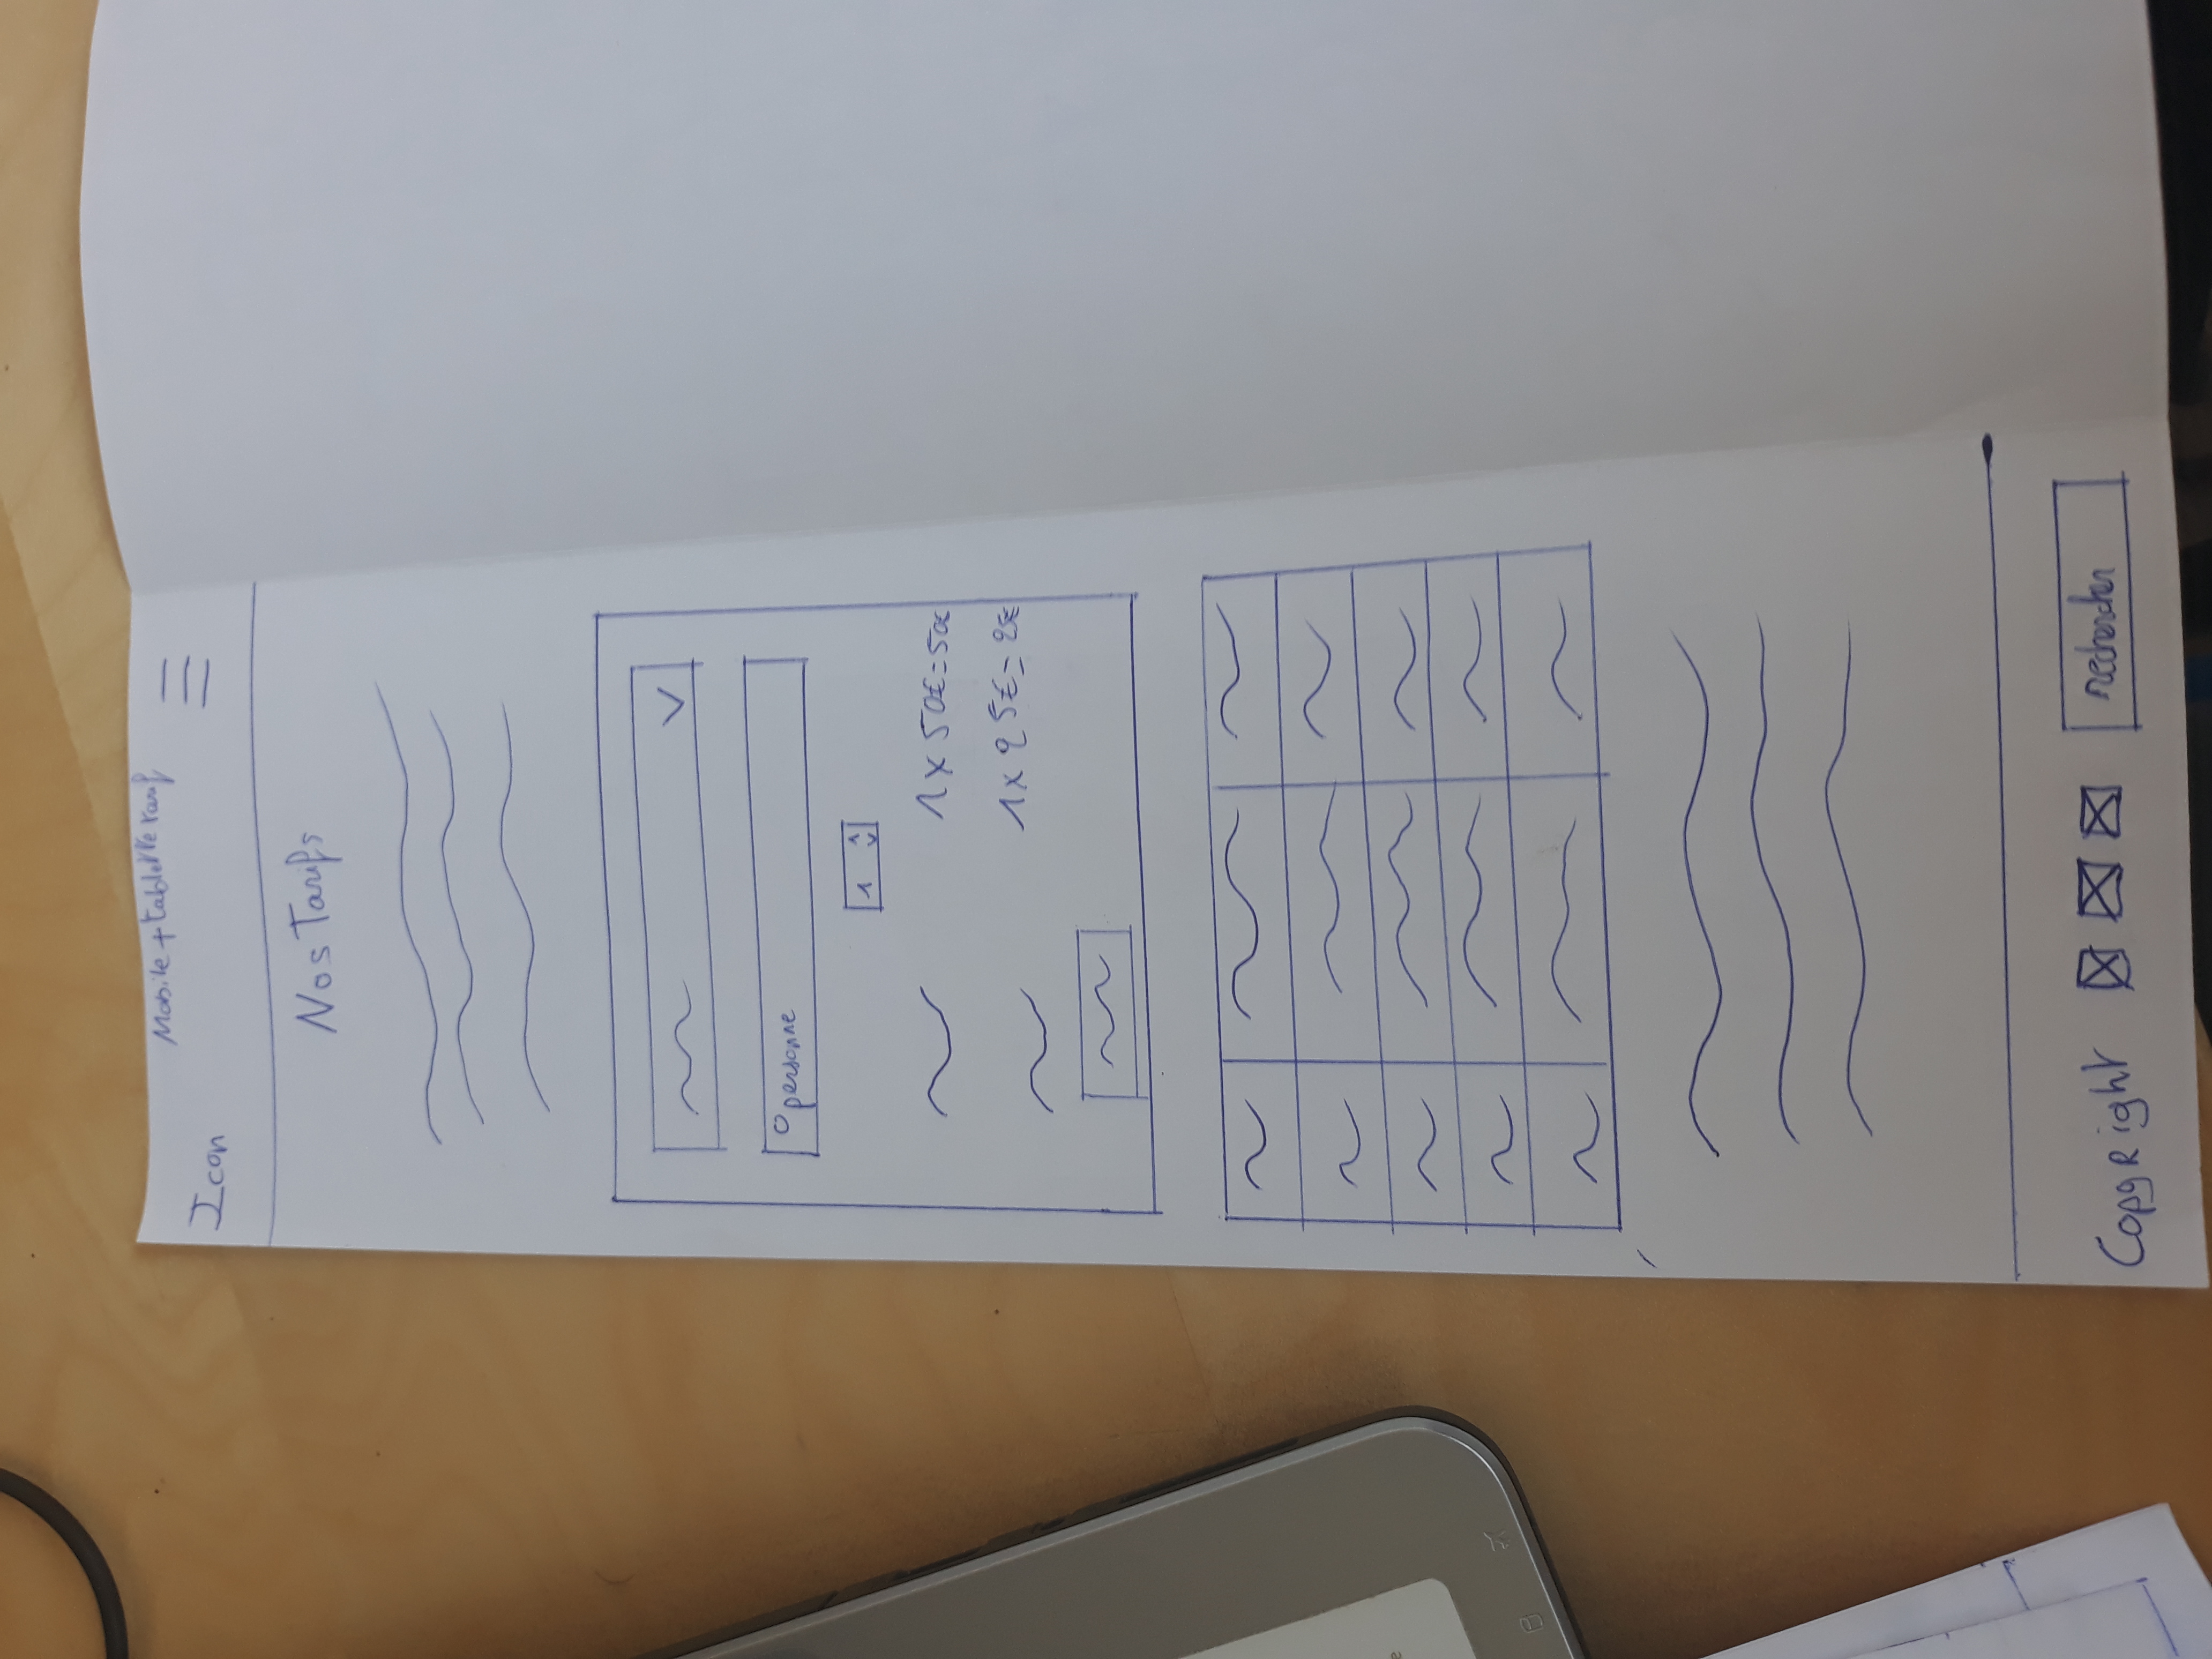 Mobile + tablette tarif
Icon
Nos Tarifs
0 personne
1
1 x 50€ = 50€
1 x 25€ = 25€
CopyRight
rechercher